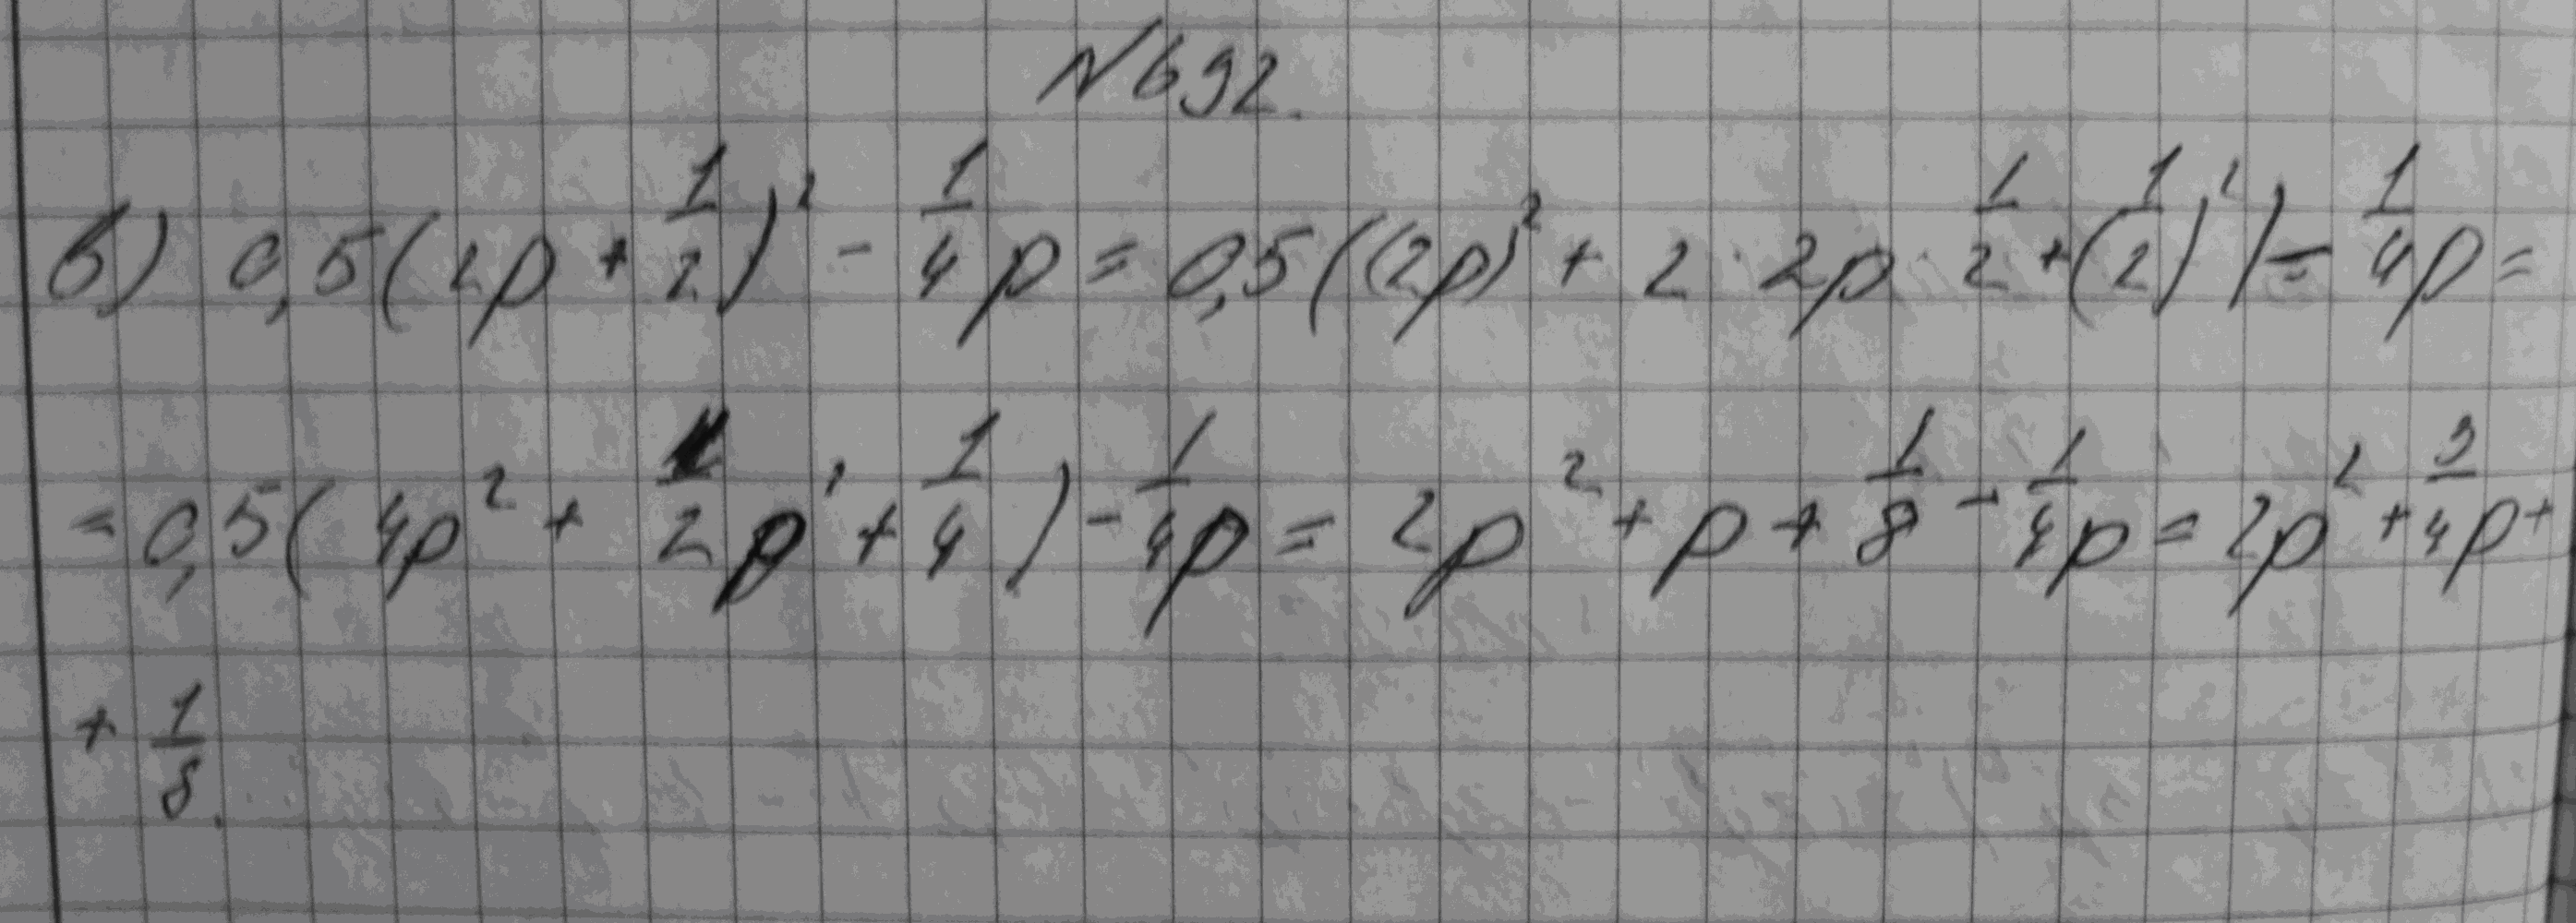 №692.
б) 0,5(2p + 1/2)² - 1/4 p = 0,5((2p)² + 2 · 2p · 1/2 + (1/2)²) - 1/4 p =
= 0,5(4p² + 2p + 1/4) - 1/4 p = 2p² + p + 1/8 - 1/4 p = 2p² + 3/4 p +
+ 1/8.